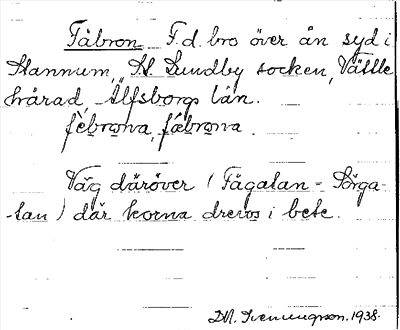 Fäbron F.d. bro över ån syd i
Stannum, St. Lundby socken, Vättle
härad, Älfsborgs län.
fèbrona, fǽbrona
Väg däröver (Fägatan - Sörga-
-tan) där korna drevos i bete.
1938.